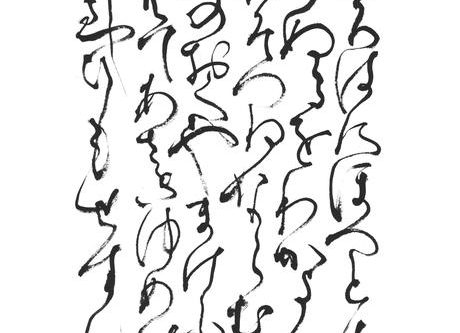 ろはにほへと
ぬるをわかよ
そつねならむ
のおくやまけふ
てあさきゆめ
ひもせす